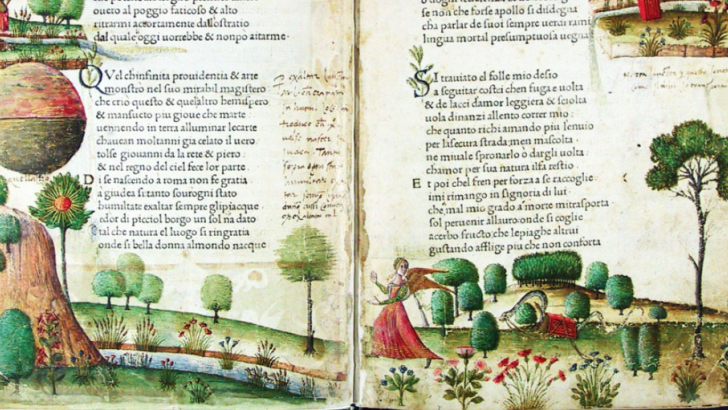 ouero al poggio faticoso & alto
ritrarmi accortamente dallostratio
dal quale oggi uorrebbe & nonpo aitarme.
QVel chinfinita prouidentia & arte
monstro nel suo mirabil magistero
che crio questo & quelaltro hemispero
& mansueto piu gioue che marte
uenendo in terra alluminar lecarte
chauean moltanni gia celato il uero
tolse giouanni da la rete & piero
& nel regno del ciel fece lor parte
Di se nascendo a roma non fe gratia
a giudea si tanto sourogni stato
humiltate exaltar sempre glipiacque
edor di picciol borgo un sol na dato
tal che natura el luogo si ringratia
onde si bella donna almondo nacque
se non che forse apollo si disdegna
cha parlar de suoi sempre uerai rami
lingua mortal presumptuosa uegna
SI trauiato el folle mio desio
a seguitar costei chen fuga e uolta
& de lacci damor leggiera & sciolta
uola dinanzi allento correr mio
che quanto richiamando piu lenuio
per lasecura strada, men mascolta
ne miuale spronarlo o dargli uolta
chamor per sua natura ilfa restio
Et poi chel fren per forza a se raccoglie
imi rimango in signoria di lui
che mal mio grado a morte mitrasporta
sol peruenir allauro, onde si coglie
acerbo fructo, che lepiaghe altrui
gustando afflige piu che non conforta